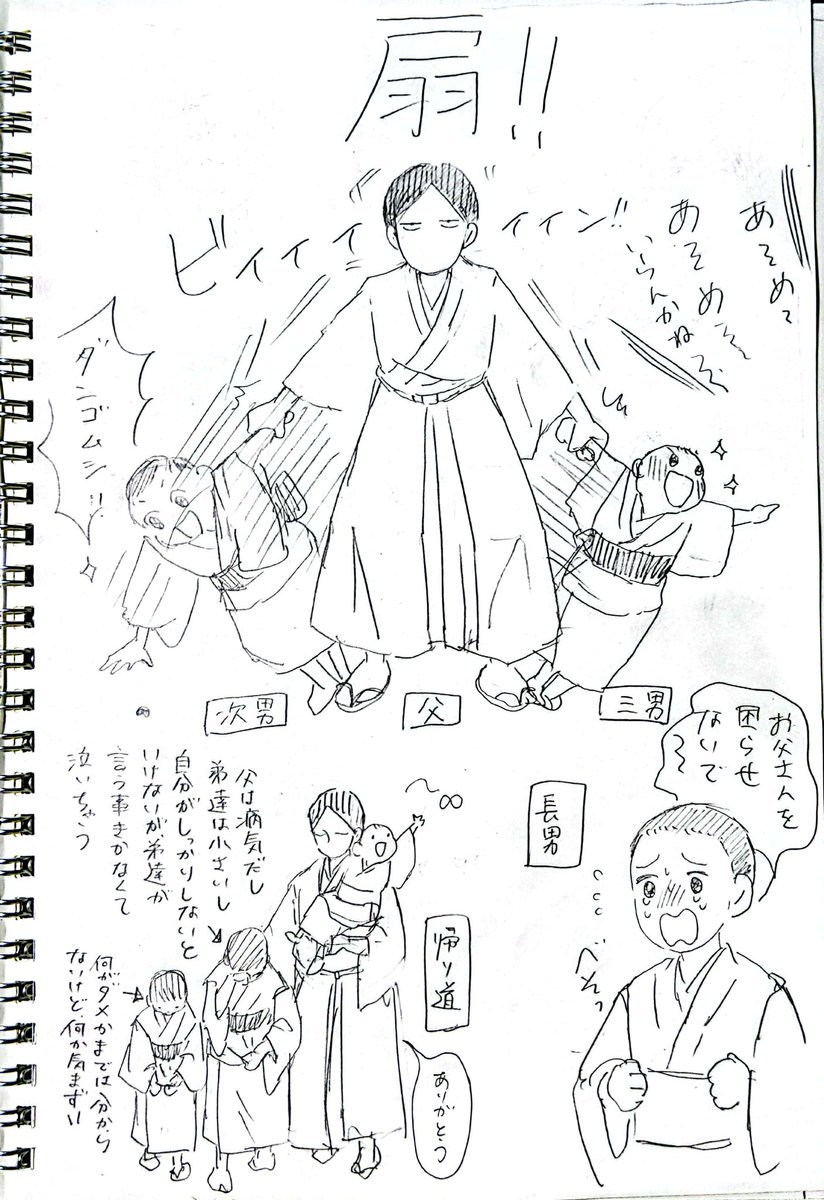 扇!!
ビィィィィィン!!
いらんかね
ダンゴムシ!!
次男
父
三男
お父さんを
困らせ
ないで
長男
父は病気だし
弟達は小さいし
自分がしっかりしないと
いけないが弟達が
言う事きかなくて
泣いちゃう
帰り道
ありがとう
何がダメかまでは分から
ないけど、何か気まずい